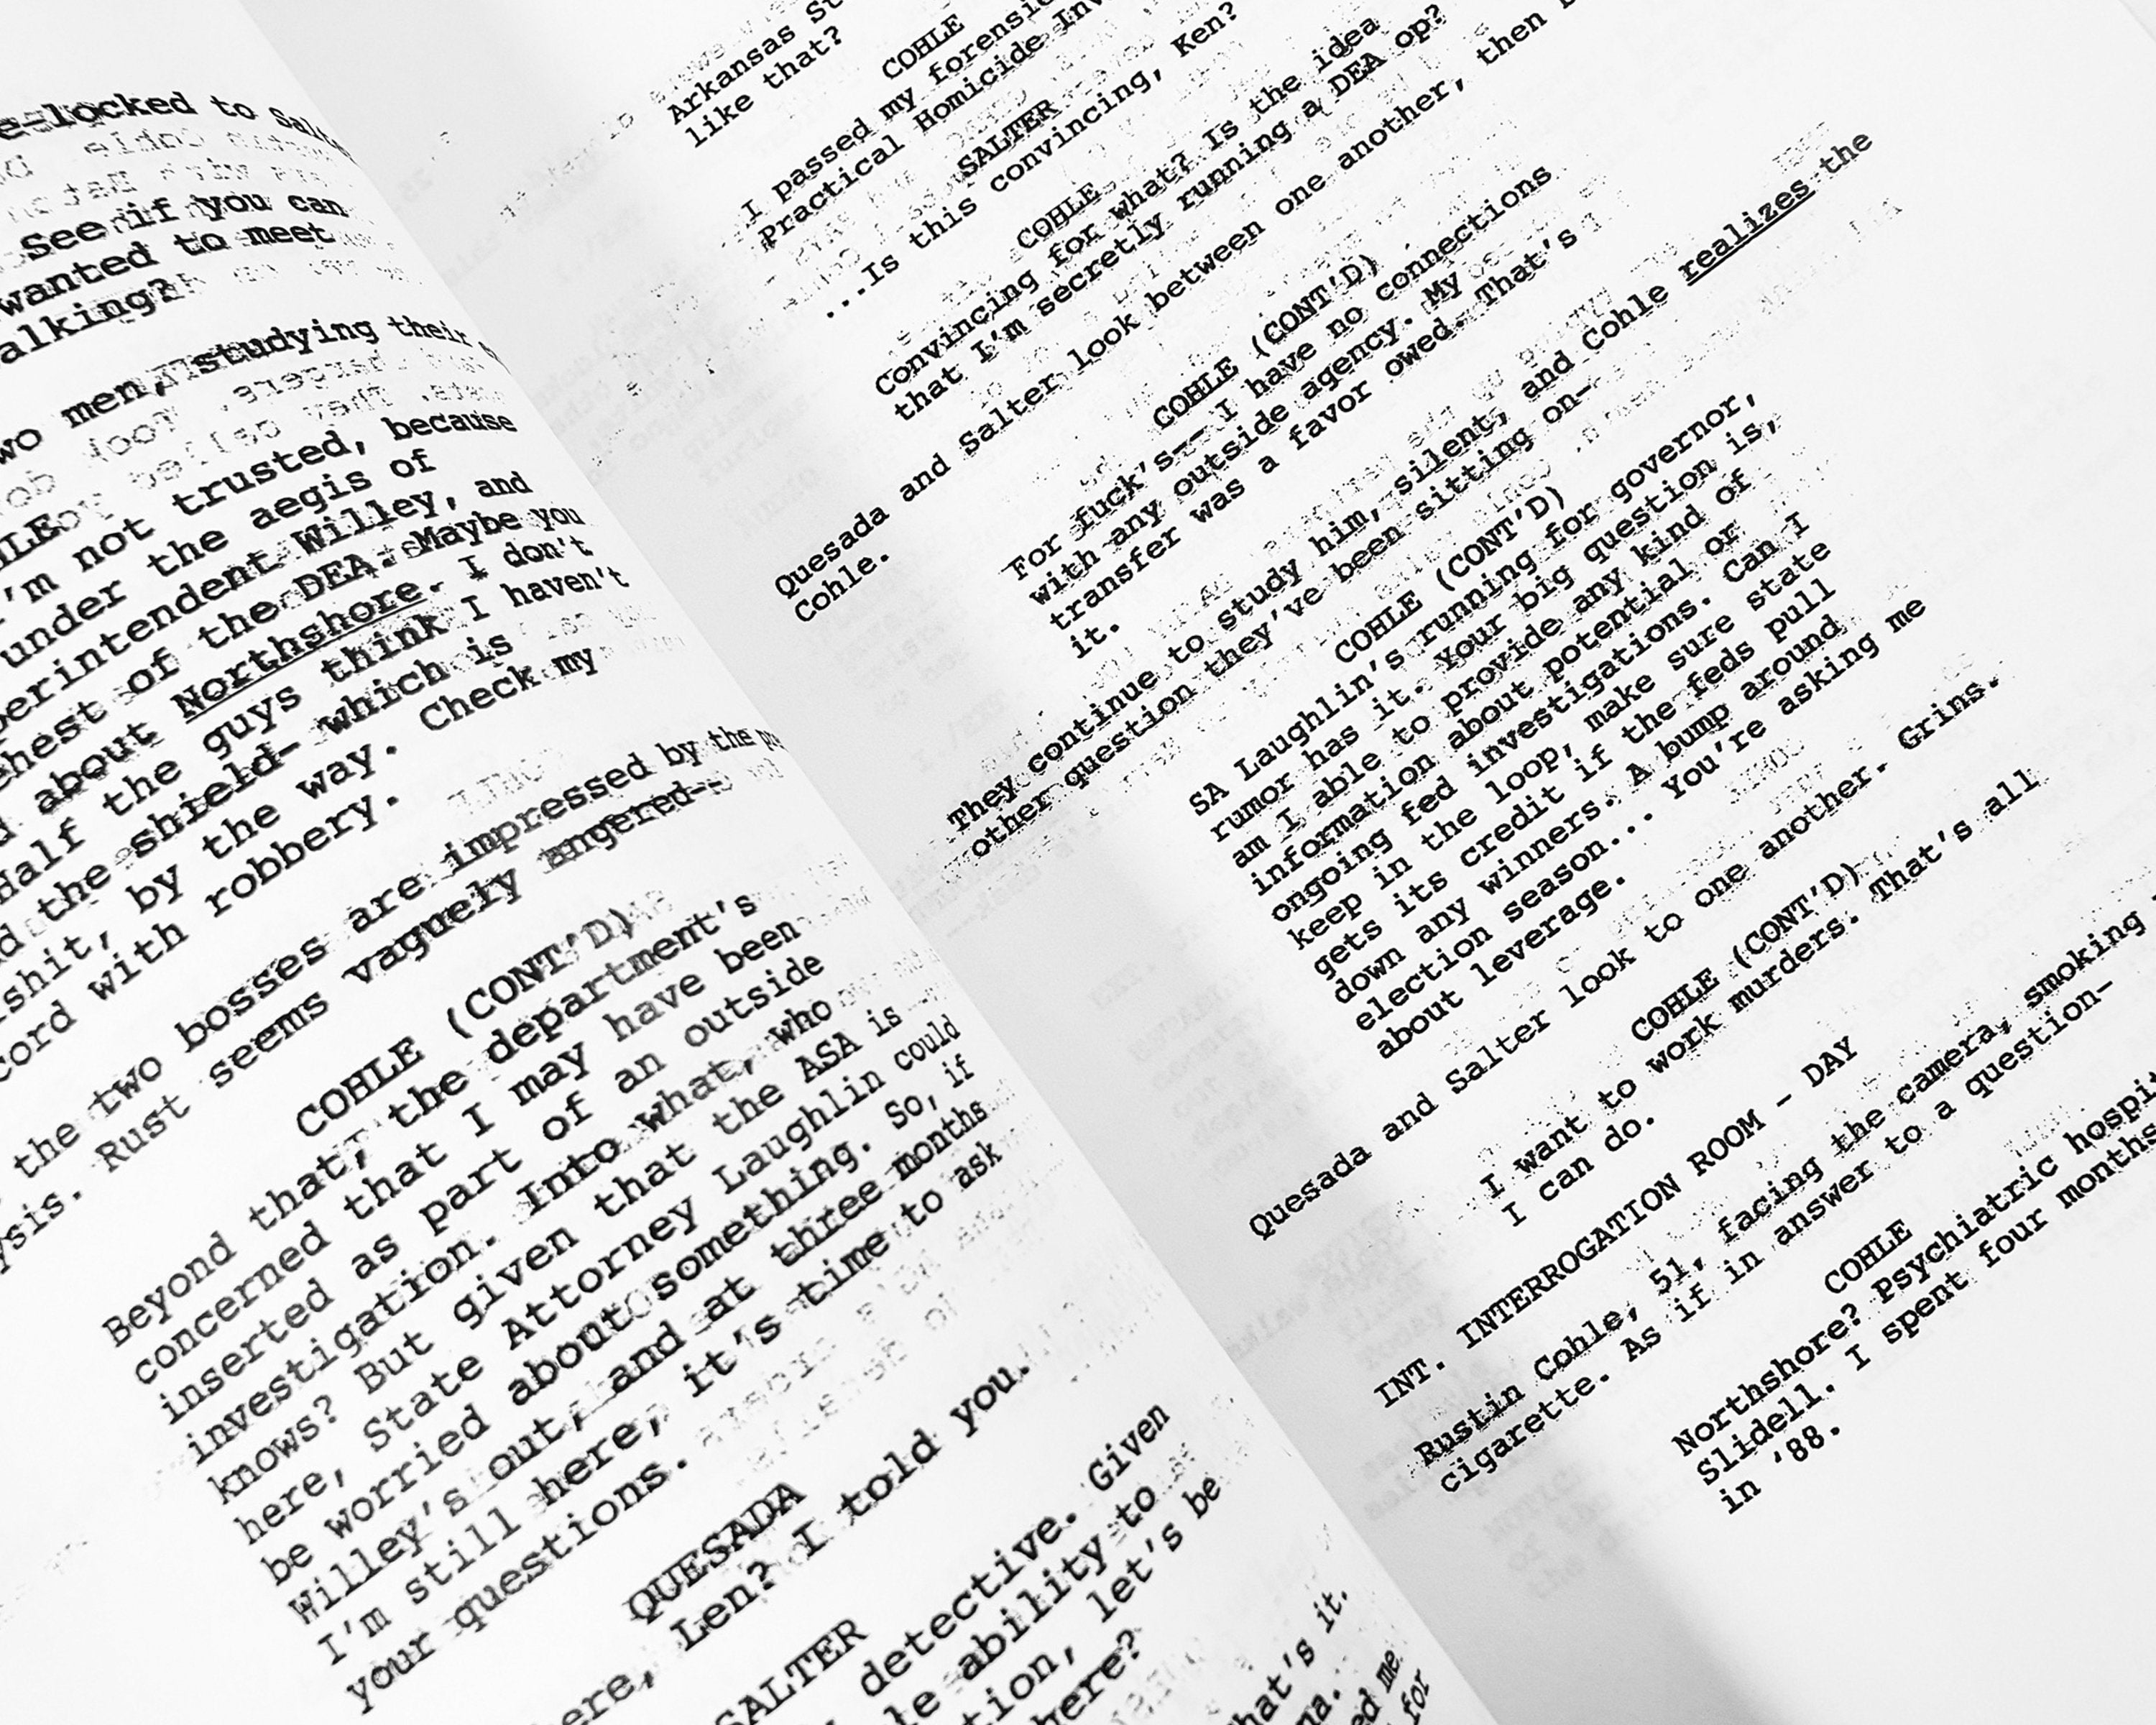 locked to
See if you can
wanted to meet
alking?
wo men, studying their
I'm not trusted, because
under the aegis of
perintendent Willey, and
ehest of the DEA. Maybe you
about Northshore. I don't
Half the guys think I haven't
the shield- which is
shit, by the way. Check my
cord with robbery.
the two bosses are impressed by the
ysis. Rust seems vaguely angered-
COHLE (CONT'D)
Beyond that, the department's
concerned that I may have been
inserted as part of an outside
investigation. Into what, who
knows? But given that the ASA is
here, State Attorney Laughlin could
be worried about something. So, if
Willey's out, and at three months
I'm still here, it's time to ask
your questions.
QUESADA
ere, Len? I told you.
SALTER
detective. Given
le ability to
tion, let's be
here?
hat's it.
na.
ed me
for
Arkansas
like that?
COHLE
I passed my
Practical Homicide
SALTER
...Is this convincing, Ken?
COHLE
Convincing for what? Is the idea
that I'm secretly running a DEA op?
Quesada and Salter look between one another, then
Cohle.
COHLE (CONT'D)
For fuck's-- I have no connections
with any outside agency. My
transfer was a favor owed. That's
it.
They continue to study him, silent, and Cohle realizes the
other question they've been sitting on-
COHLE (CONT'D)
SA Laughlin's running for governor,
rumor has it. Your big question is,
am I able to provide any kind of
information about potential or
ongoing fed investigations. Can I
keep in the loop, make sure state
gets its credit if the feds pull
down any winners. A bump around
election season... You're asking me
about leverage.
Quesada and Salter look to one another. Grins.
COHLE (CONT'D)
I want to work murders. That's all
I can do.
INT. INTERROGATION ROOM - DAY
Rustin Cohle, 51, facing the camera, smoking
cigarette. As if in answer to a question-
COHLE
Northshore? Psychiatric hospi
Slidell. I spent four months
in '88.